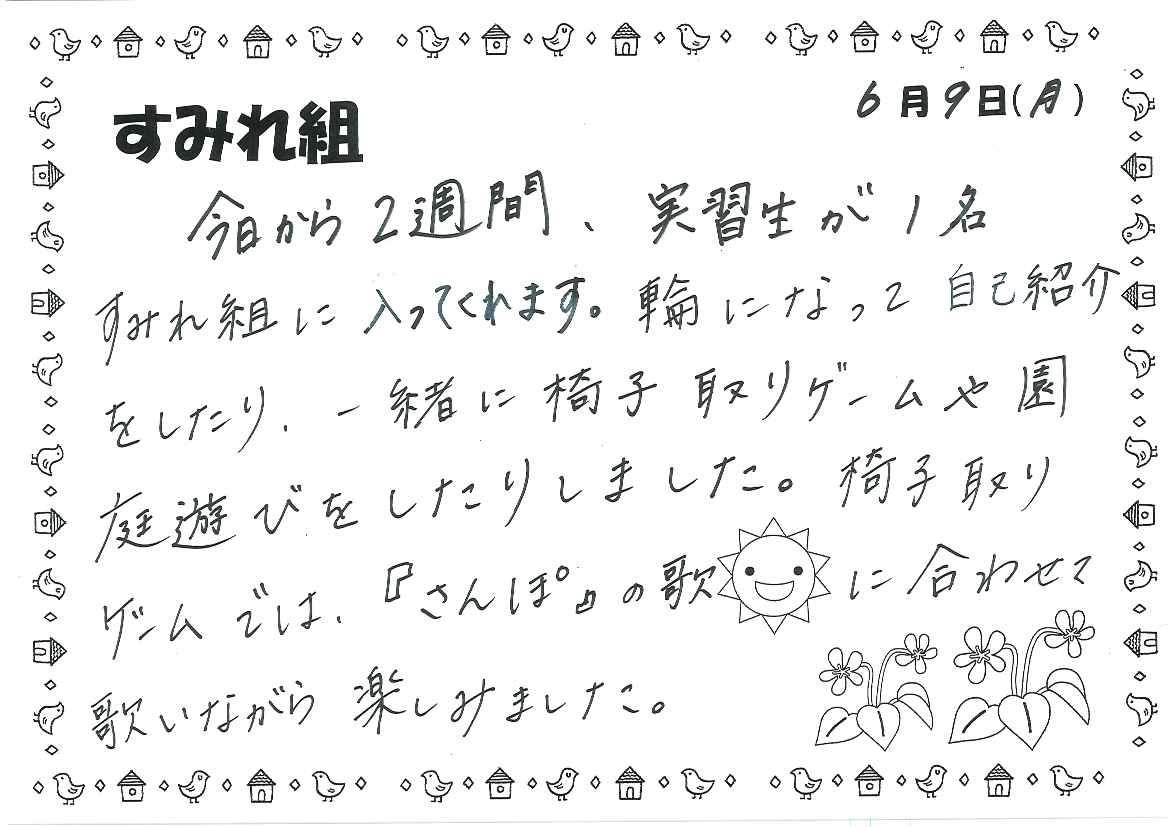 6月9日(月)
すみれ組
今日から2週間、実習生が1名
すみれ組に入ってくれます。輪になって自己紹介
をしたり、一緒に椅子取りゲームや園
庭遊びをしたりしました。椅子取り
ゲームでは、『さんぽ』の歌に合わせて
歌いながら楽しみました。